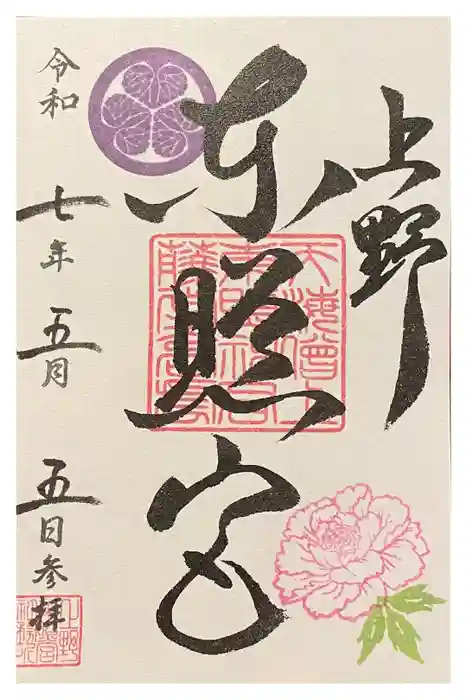 上野
東照宮
令和 七年 五月 五日参拝